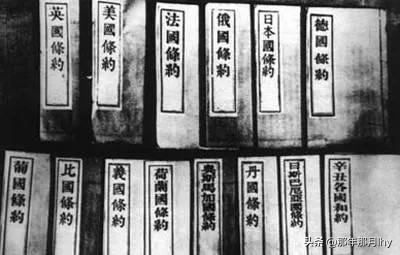 英國條約
美國條約
法國條約
俄國條約
日本國條約
德國條約
葡國條約
比國條約
義國條約
荷蘭國條約
奧斯馬加國條約
丹國條約
日斯巴尼亞國條約
辛丑各國和約
头条 @那年那月lhy